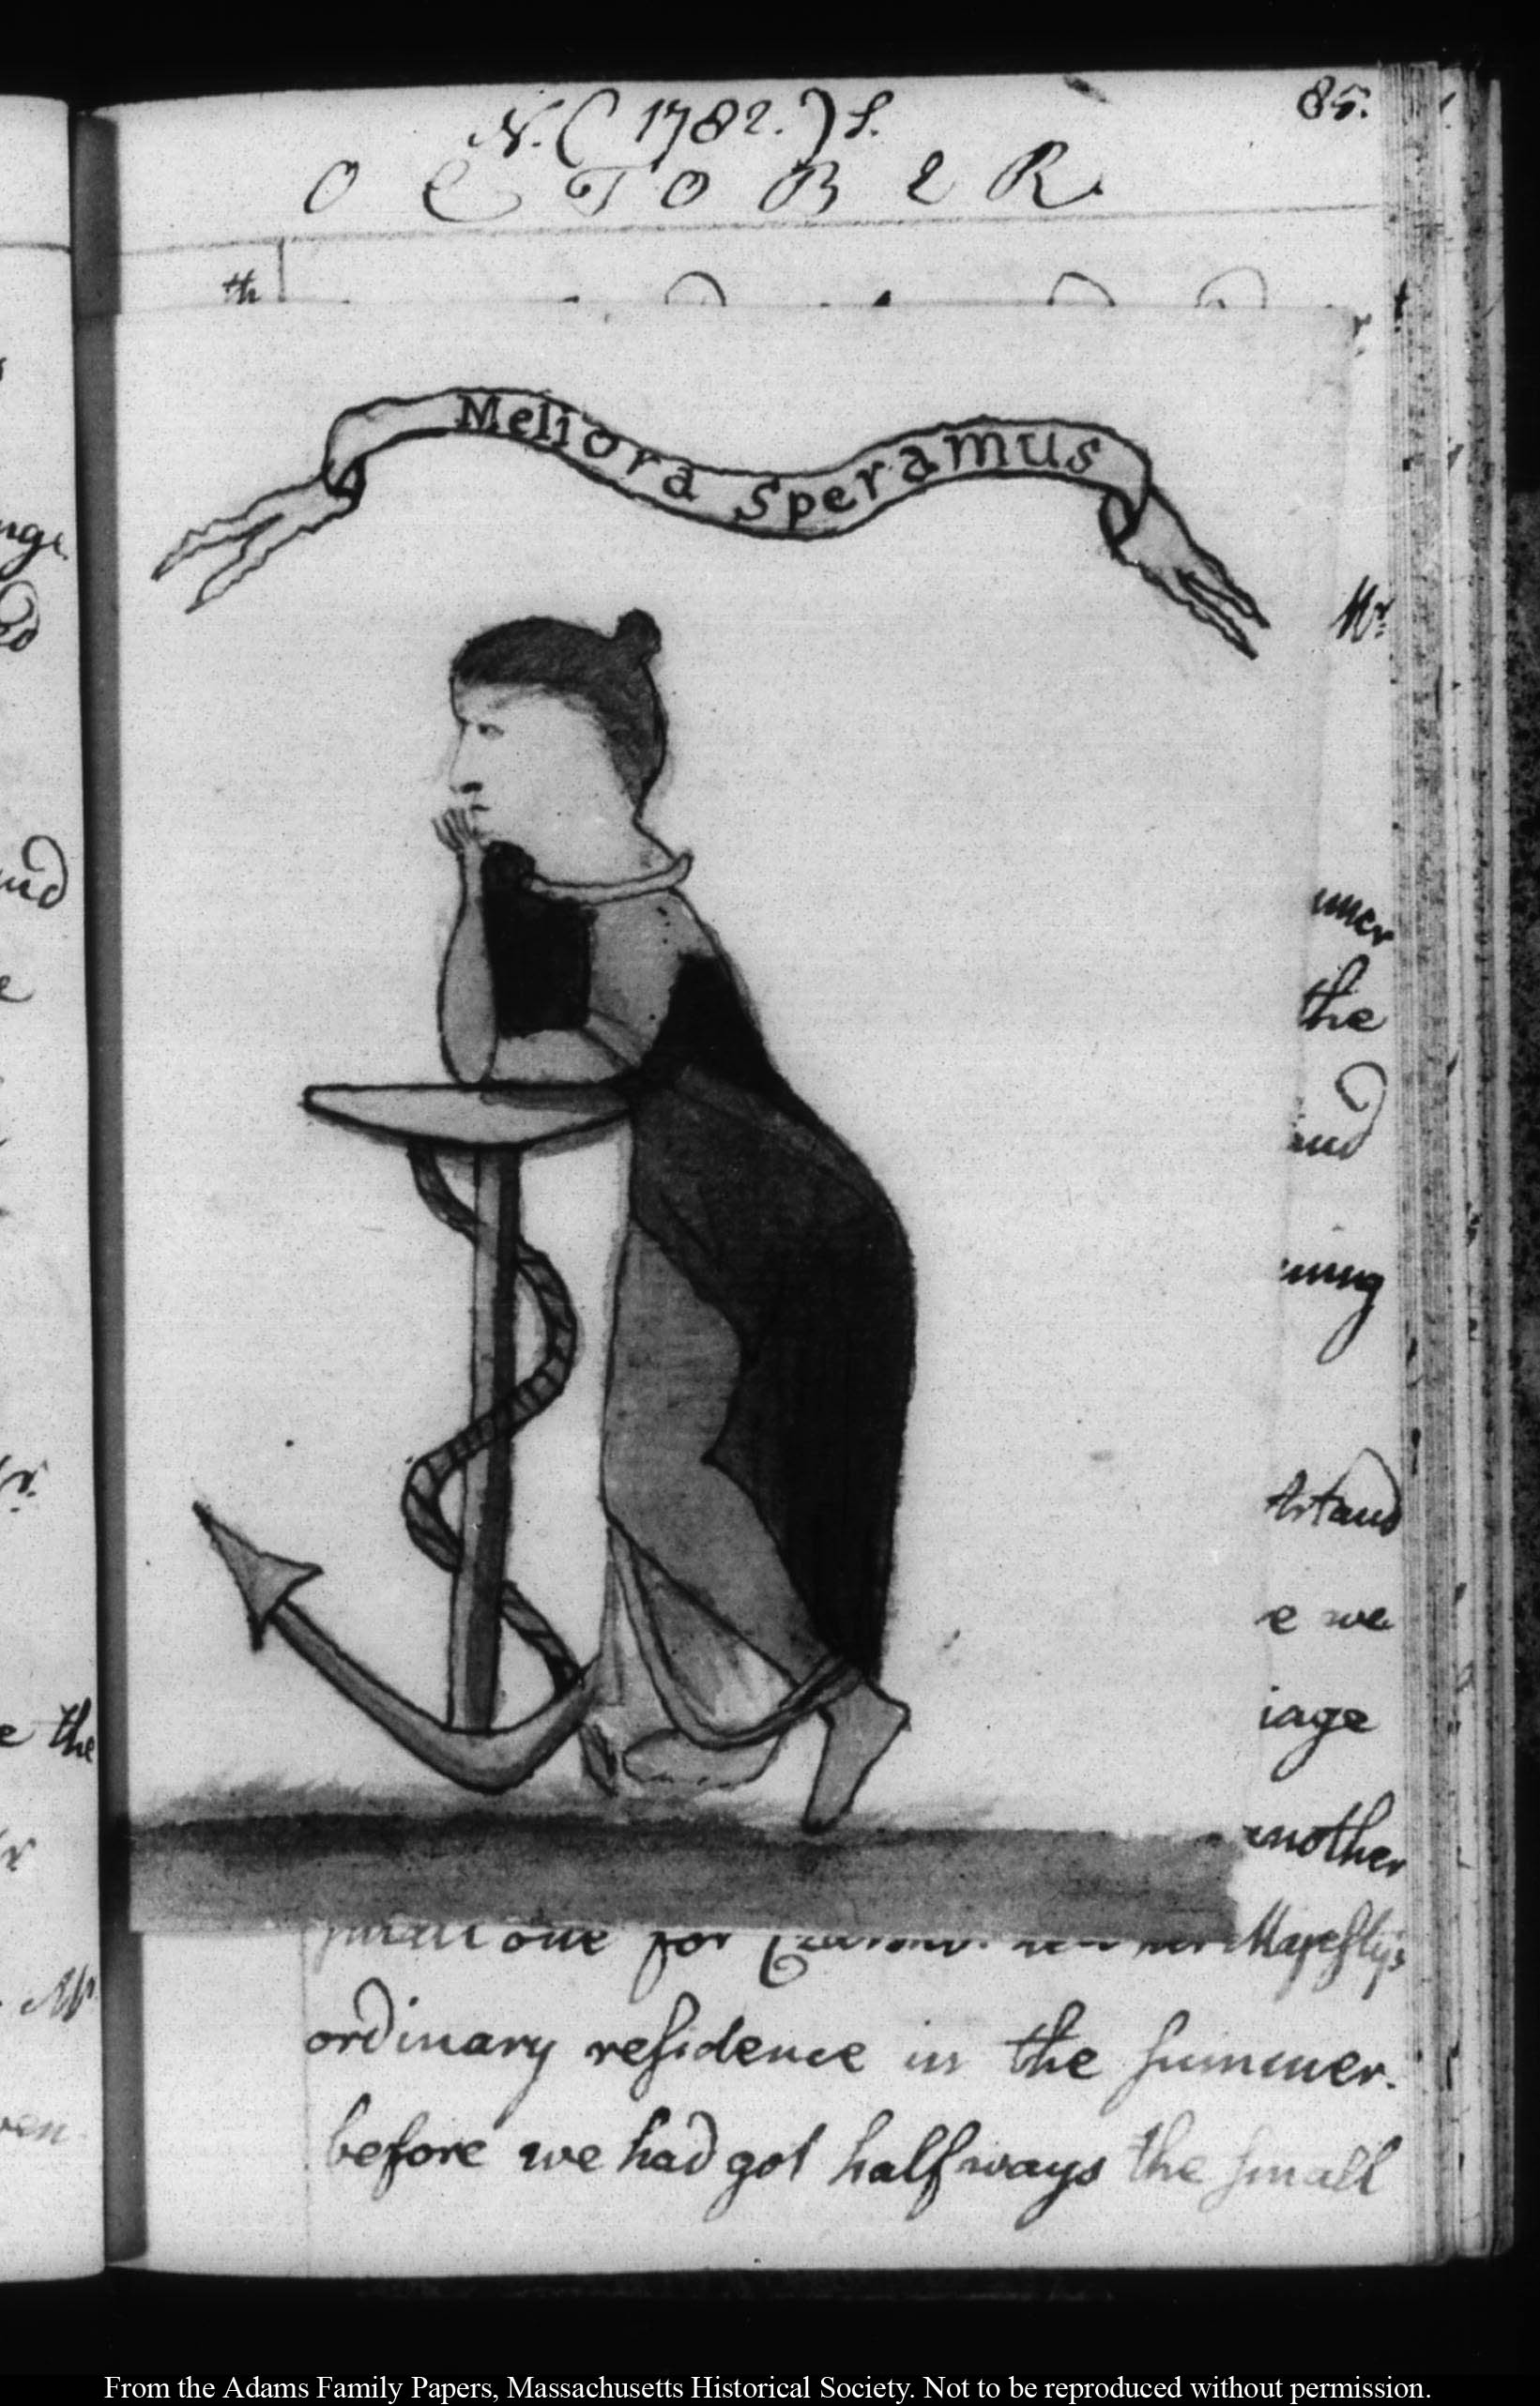 85.
N. (1782.) S.
OCTOBER.
th
Meliora Speramus
Mr.
the
and
e we
iage
another
one for Majesty's
ordinary residence in the summer.
before we had got halfways the small
e the
From the Adams Family Papers, Massachusetts Historical Society. Not to be reproduced without permission.